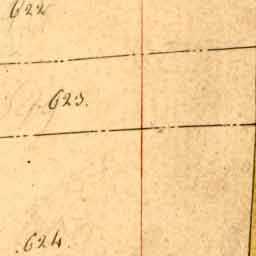 622
623.
.624.